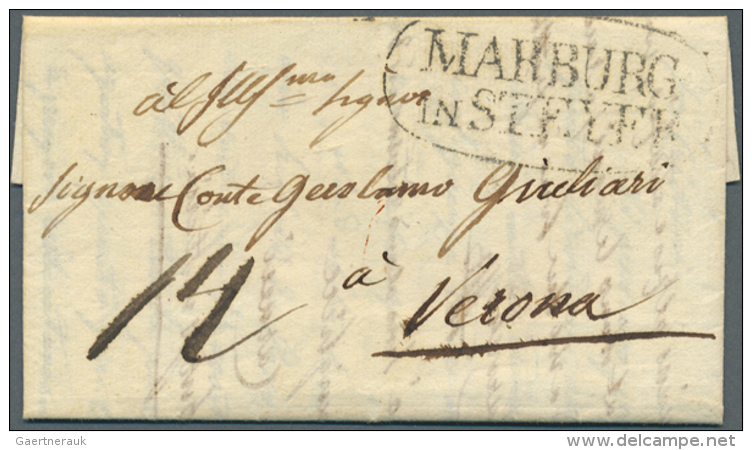 MARBURG
IN STEYER
àl Ill.mo Signor
Signore Conte Gerolamo Giuliari
14
à
Verona
Gaertnerauk
delcampe.net